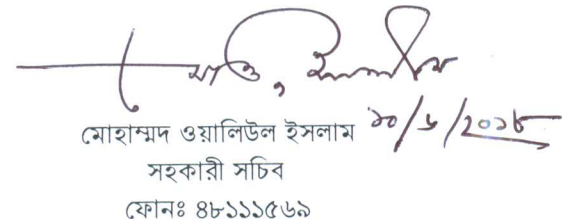 মোহাম্মদ ওয়ালিউল ইসলাম ১০/৬/২০১৮
সহকারী সচিব
ফোনঃ ৪৮১১১৫৬৯